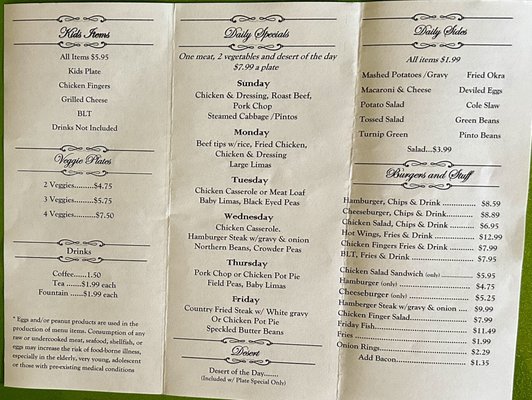 Kids Items
All Items $5.95
Kids Plate
Chicken Fingers
Grilled Cheese
BLT
Drinks Not Included
Veggie Plates
2 Veggies........$4.75
3 Veggies........$5.75
4 Veggies.......$7.50
Drinks
Coffee......1.50
Tea .......$1.99 each
Fountain ......$1.99 each
* Eggs and/or peanut products are used in the
production of menu items. Consumption of any
raw or undercooked meat, seafood, shellfish, or
eggs may increase the risk of food-borne illness,
especially in the elderly, very young, adolescent
or those with pre-existing medical conditions
Daily Specials
One meat, 2 vegetables and desert of the day
$7.99 a plate
Sunday
Chicken & Dressing, Roast Beef,
Pork Chop
Steamed Cabbage /Pintos
Monday
Beef tips w/rice, Fried Chicken,
Chicken & Dressing
Large Limas
Tuesday
Chicken Casserole or Meat Loaf
Baby Limas, Black Eyed Peas
Wednesday
Chicken Casserole,
Hamburger Steak w/gravy & onion
Northern Beans, Crowder Peas
Thursday
Pork Chop or Chicken Pot Pie
Field Peas, Baby Limas
Friday
Country Fried Steak w/ White gravy
Or Chicken Pot Pie
Speckled Butter Beans
Desert
Desert of the Day........
(Included w/ Plate Special Only)
Daily Sides
All items $1.99
Mashed Potatoes /Gravy Fried Okra
Macaroni & Cheese Deviled Eggs
Potato Salad Cole Slaw
Tossed Salad Green Beans
Turnip Green Pinto Beans
Salad...$3.99
Burgers and Stuff
Hamburger, Chips & Drink .......... $8.59
Cheeseburger, Chips & Drink.......... $8.89
Chicken Salad, Chips & Drink .......... $6.95
Hot Wings, Fries & Drink .......... $12.99
Chicken Fingers Fries & Drink .......... $7.99
BLT, Fries & Drink .......... $7.95
Chicken Salad Sandwich (only) .......... $5.95
Hamburger (only) .......... $4.75
Cheeseburger (only) .......... $5.25
Hamberger Steak w/gravy & onion .... $9.99
Chicken Finger Salad.......... $7.99
Friday Fish.......... $11.49
Fries .......... $1.99
Onion Rings.......... $2.29
Add Bacon.......... $1.35